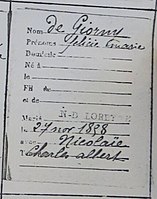 Nom: De Giorny
Prénoms Félicie Marie
Domicile
Né à
le
FH de
et de
Marié N-D LORETTE
le 27 nov 1858
avec Nicolaïe
Charles albert